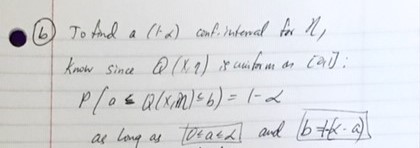 (b) To find a (1-α) conf. interval for η,
know since Q(X,η) is uniform on [0,1]:
P(a ≤ Q(X,η) ≤ b) = 1-α
as long as 0≤a≤α and b=1-(α-a)